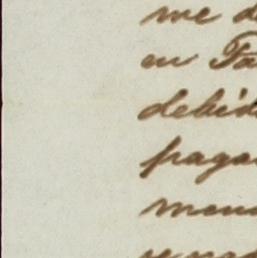 me d
en Fa
debid
paga
men